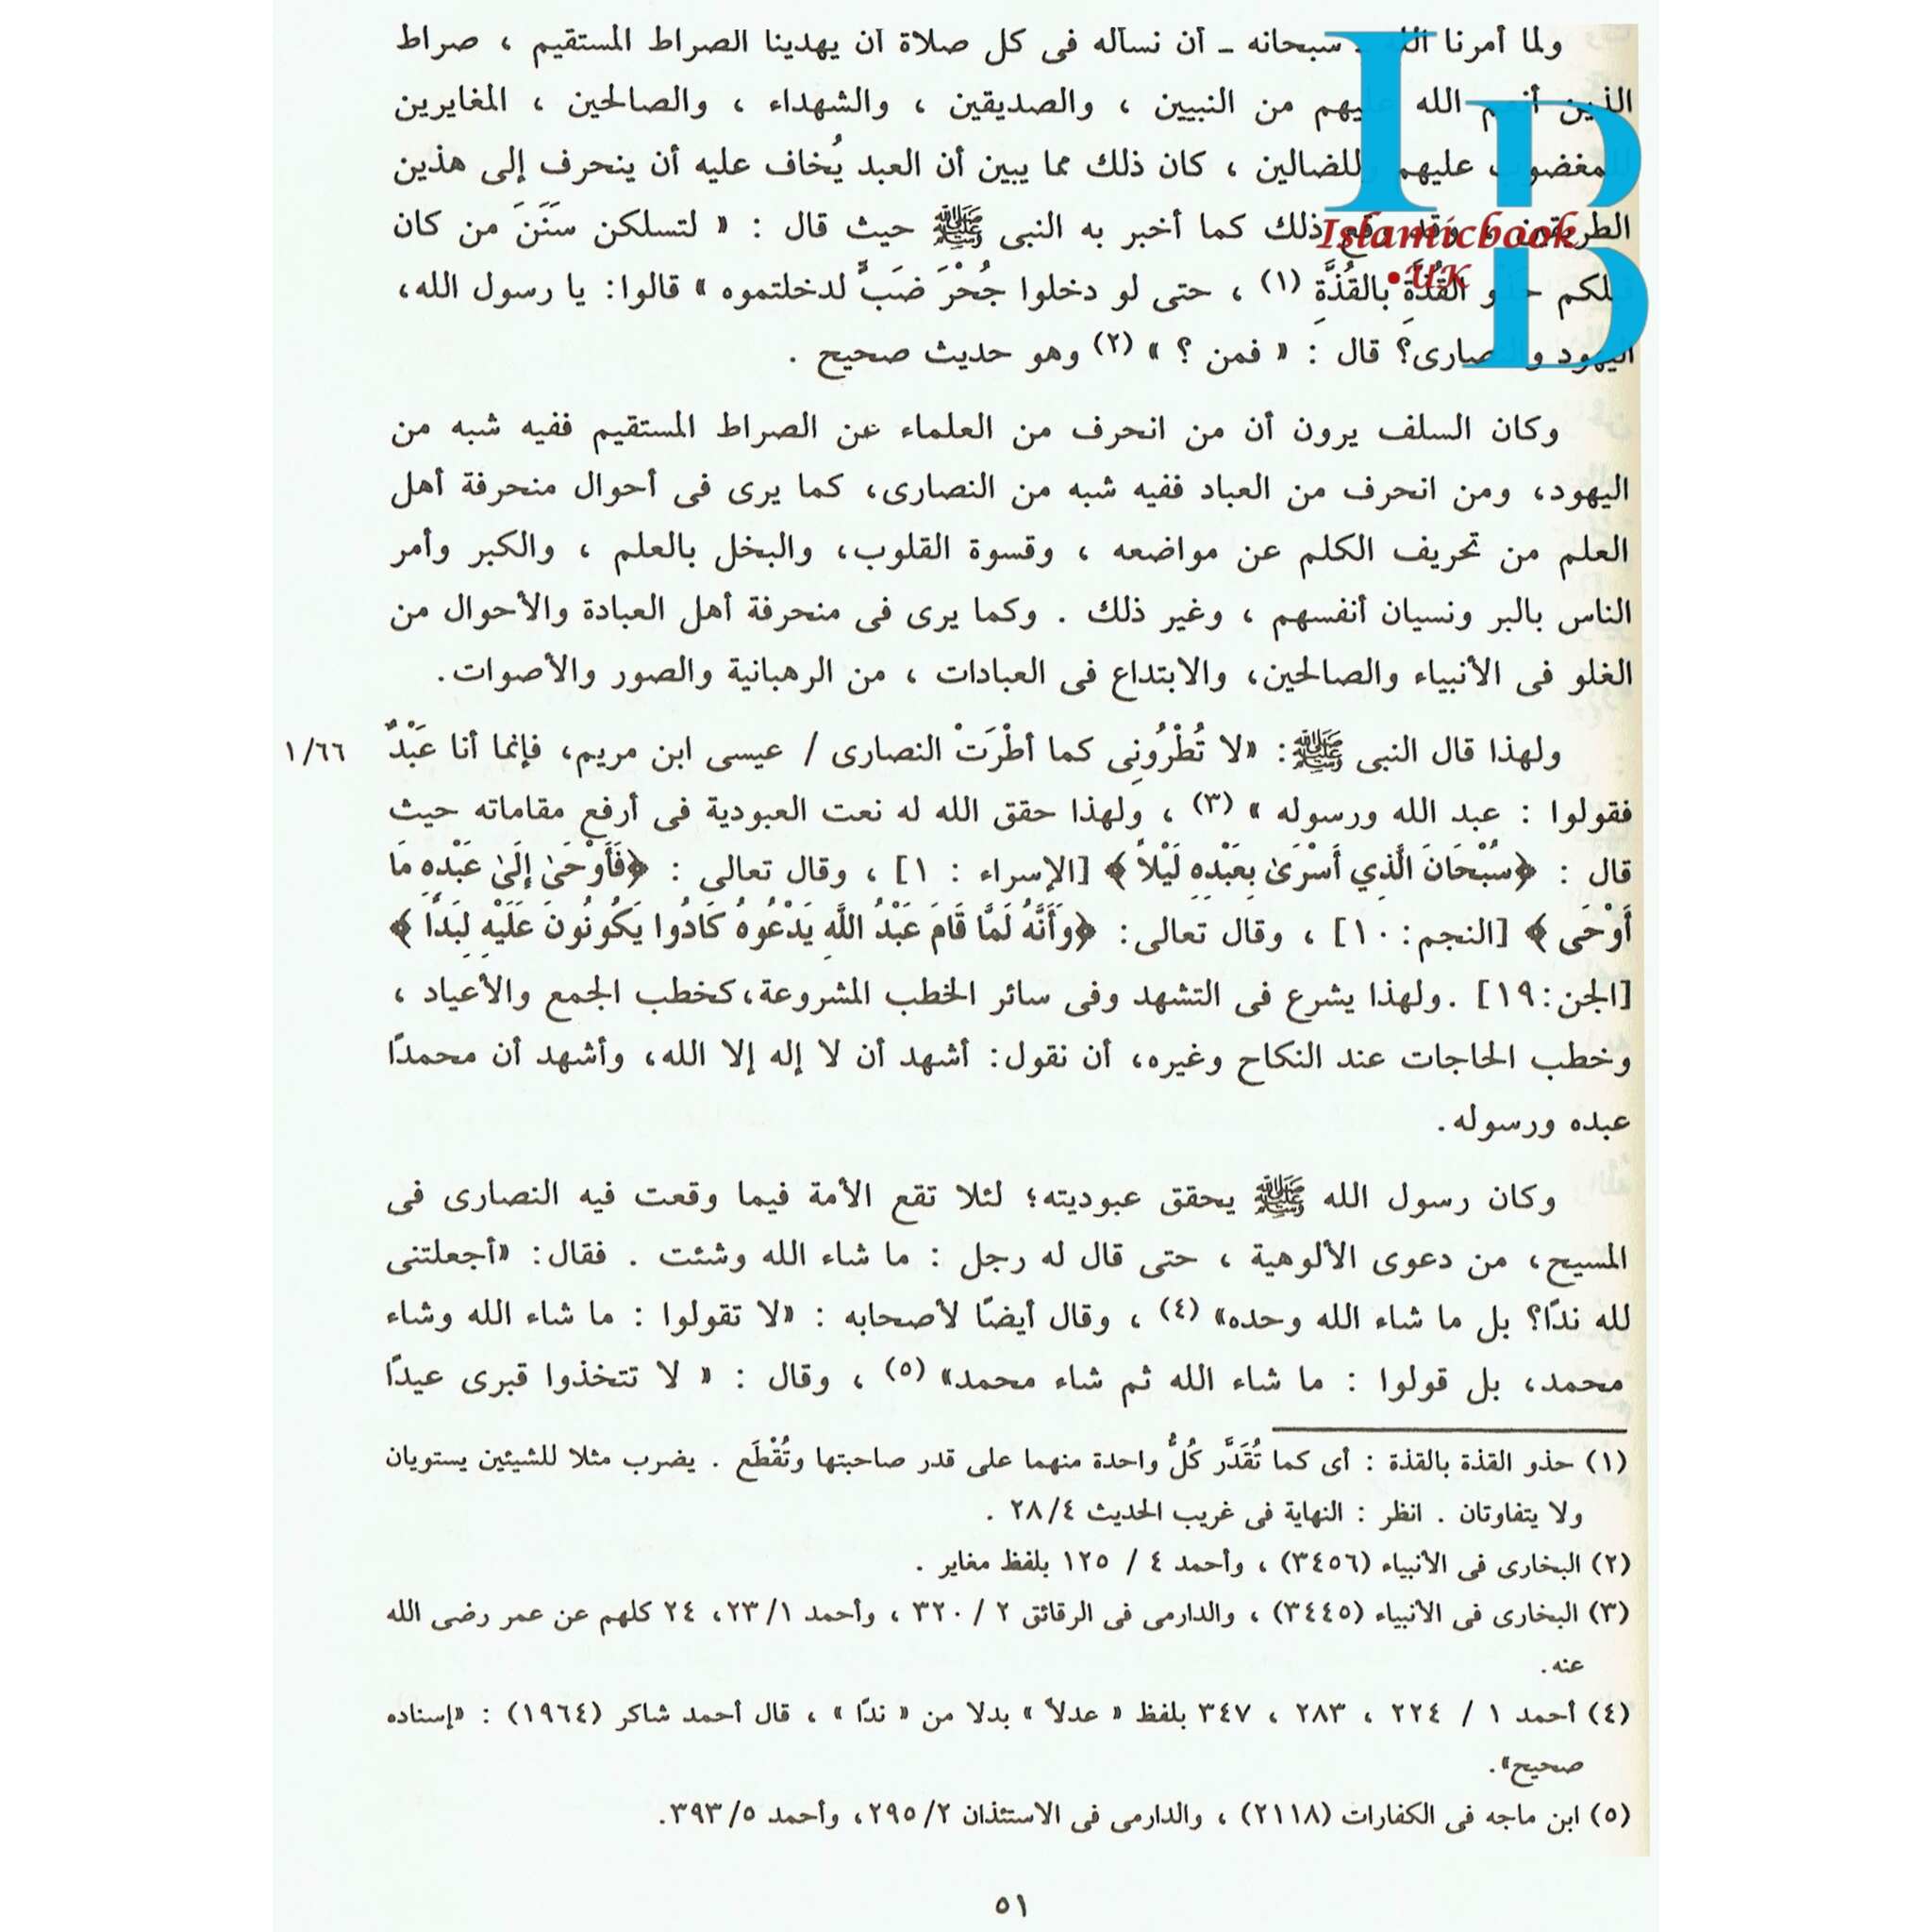 ولما أمرنا الله ـ سبحانه ـ أن نسأله فى كل صلاة أن يهدينا الصراط المستقيم ، صراط
الذين أنعم الله عليهم من النبيين ، والصديقين ، والشهداء ، والصالحين ، المغايرين
للمغضوب عليهم وللضالين ، كان ذلك مما يبين أن العبد يُخاف عليه أن ينحرف إلى هذين
الطريقين ، وقد وقع ذلك كما أخبر به النبى ﷺ حيث قال : « لتسلكن سَنَنَ من كان
قبلكم حذو القُذَّةِ بالقُذَّةِ (١) ، حتى لو دخلوا جُحْرَ ضَبٍّ لدخلتموه » قالوا: يا رسول الله،
اليهود والنصارى؟ قال : « فمن ؟ » (٢) وهو حديث صحيح .
وكان السلف يرون أن من انحرف من العلماء عن الصراط المستقيم ففيه شبه من
اليهود، ومن انحرف من العباد ففيه شبه من النصارى، كما يرى فى أحوال منحرفة أهل
العلم من تحريف الكلم عن مواضعه ، وقسوة القلوب، والبخل بالعلم ، والكبر وأمر
الناس بالبر ونسيان أنفسهم ، وغير ذلك . وكما يرى فى منحرفة أهل العبادة والأحوال من
الغلو فى الأنبياء والصالحين، والابتداع فى العبادات ، من الرهبانية والصور والأصوات.
ولهذا قال النبى ﷺ: «لا تُطْرُونِى كما أطْرَتْ النصارى / عيسى ابن مريم، فإنما أنا عَبْدٌ ١/٦٦
فقولوا : عبد الله ورسوله » (٣) ، ولهذا حقق الله له نعت العبودية فى أرفع مقاماته حيث
قال : ﴿سُبْحَانَ الَّذِي أَسْرَىٰ بِعَبْدِهِ لَيْلاً ﴾ [الإسراء : ١] ، وقال تعالى : ﴿فَأَوْحَىٰ إِلَىٰ عَبْدِهِ مَا
أَوْحَى ﴾ [النجم: ١٠] ، وقال تعالى: ﴿وَأَنَّهُ لَمَّا قَامَ عَبْدُ اللَّهِ يَدْعُوهُ كَادُوا يَكُونُونَ عَلَيْهِ لِبَدًا ﴾
[الجن: ١٩] .ولهذا يشرع فى التشهد وفى سائر الخطب المشروعة،كخطب الجمع والأعياد ،
وخطب الحاجات عند النكاح وغيره، أن نقول: أشهد أن لا إله إلا الله، وأشهد أن محمدًا
عبده ورسوله.
وكان رسول الله ﷺ يحقق عبوديته؛ لئلا تقع الأمة فيما وقعت فيه النصارى فى
المسيح، من دعوى الألوهية ، حتى قال له رجل : ما شاء الله وشئت . فقال: «أجعلتنى
لله ندًا؟ بل ما شاء الله وحده» (٤) ، وقال أيضًا لأصحابه : «لا تقولوا : ما شاء الله وشاء
محمد، بل قولوا : ما شاء الله ثم شاء محمد» (٥) ، وقال : « لا تتخذوا قبرى عيدًا
(١) حذو القذة بالقذة : أى كما تُقَدَّر كُلُّ واحدة منهما على قدر صاحبتها وتُقْطَع . يضرب مثلا للشيئين يستويان
ولا يتفاوتان . انظر : النهاية فى غريب الحديث ٢٨/٤ .
(٢) البخارى فى الأنبياء (٣٤٥٦) ، وأحمد ٤ / ١٢٥ بلفظ مغاير .
(٣) البخارى فى الأنبياء (٣٤٤٥) ، والدارمى فى الرقائق ٢ / ٣٢٠ ، وأحمد ٢٣/١، ٢٤ كلهم عن عمر رضى الله
عنه.
(٤) أحمد ١ / ٢٢٤ ، ٢٨٣ ، ٣٤٧ بلفظ « عدلاً » بدلا من « ندًا » ، قال أحمد شاكر (١٩٦٤) : «إسناده
صحيح».
(٥) ابن ماجه فى الكفارات (٢١١٨) ، والدارمى فى الاستئذان ٢٩٥/٢، وأحمد ٣٩٣/٥.
٥١
IBD
Islamicbook
.UK